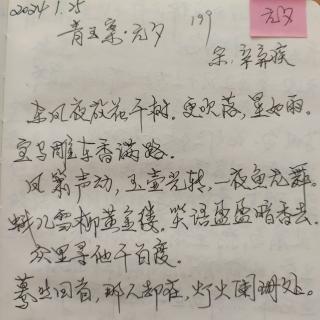 2024.1.25
青玉案·元夕 199 元夕
宋.辛弃疾
东风夜放花千树.更吹落,星如雨.
宝马雕车香满路.
凤箫声动,玉壶光转,一夜鱼龙舞.
蛾儿雪柳黄金缕.笑语盈盈暗香去.
众里寻他千百度.
蓦然回首,那人却在,灯火阑珊处.